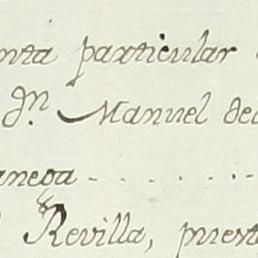 nta particular
dn. Manuel de
anega
Revilla, prest